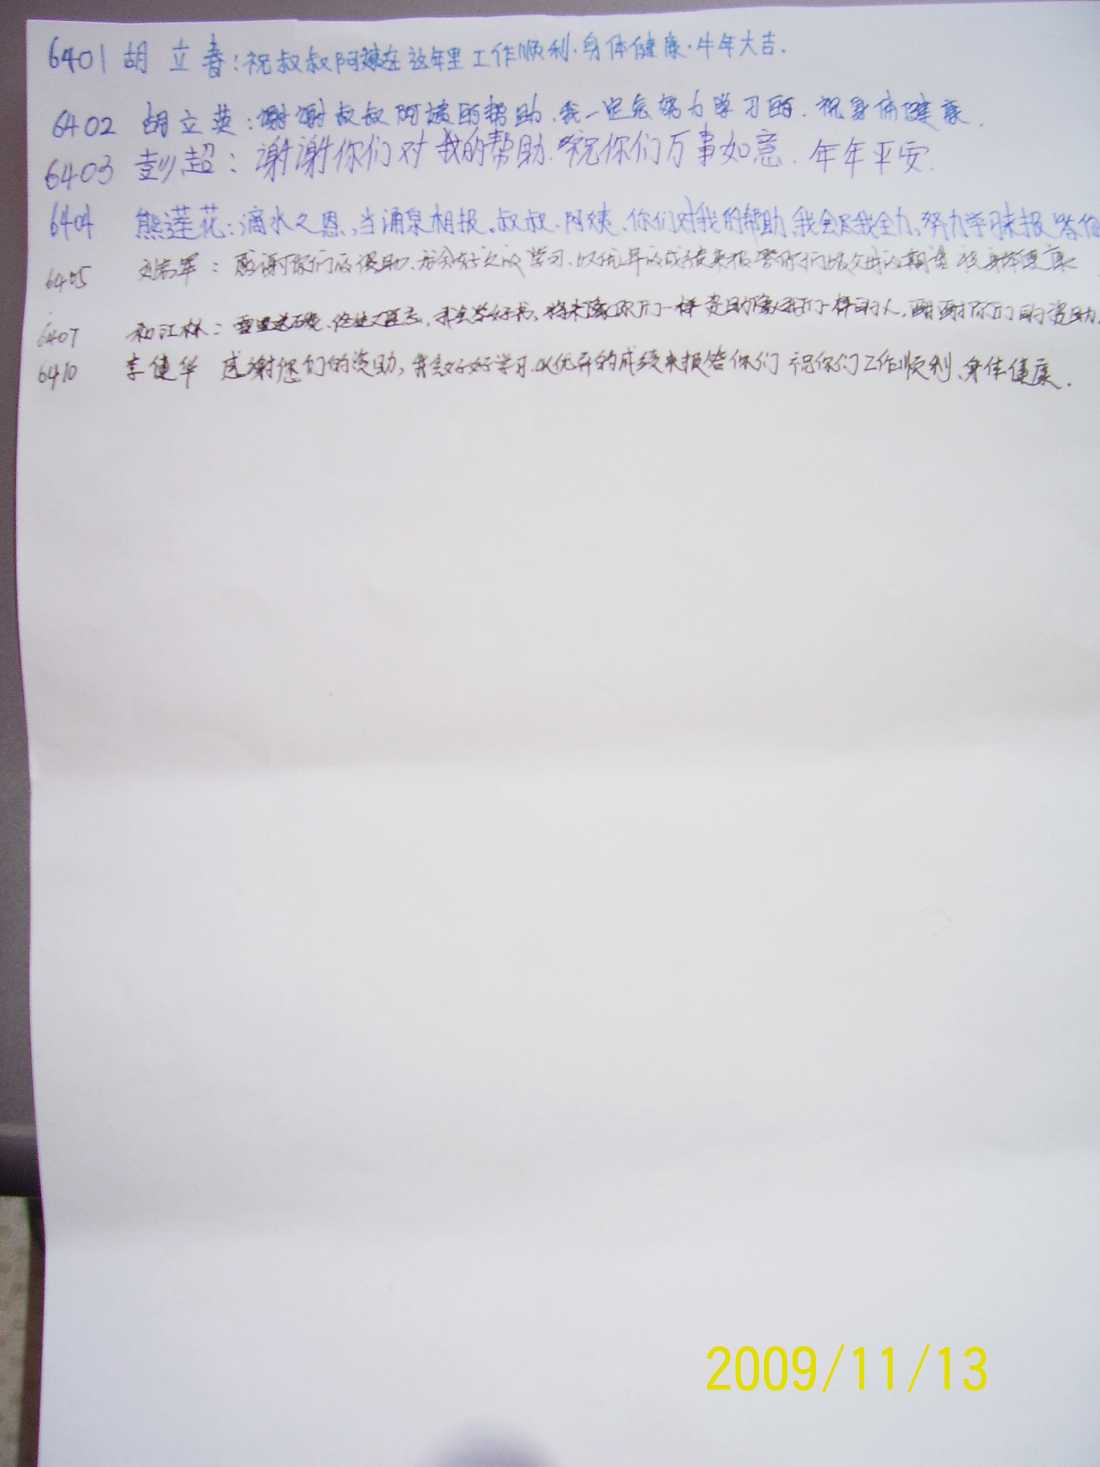 6401 胡立春:祝叔叔阿姨在这年里工作顺利.身体健康.牛年大吉.
6402 胡立英:谢谢叔叔阿姨的帮助.我一定会努力学习的.祝身体健康.
6403 彭超:谢谢你们对我的帮助.祝你们万事如意.年年平安.
6404 熊莲花:滴水之恩,当涌泉相报.叔叔.阿姨.你们对我的帮助,我会尽我全力,努力学习来报答你
6405 军:感谢你们的帮助.好好的学习.以优异的成绩来报答你们 身体健康
6407 江林:雪里送碳, 我会学好书,将来像你们一样资助像我们一样的人,谢谢你们的资助.
6410 李健华 感谢您们的资助,我会好好学习以优异的成绩来报答你们 祝你们工作顺利、身体健康.
2009/11/13